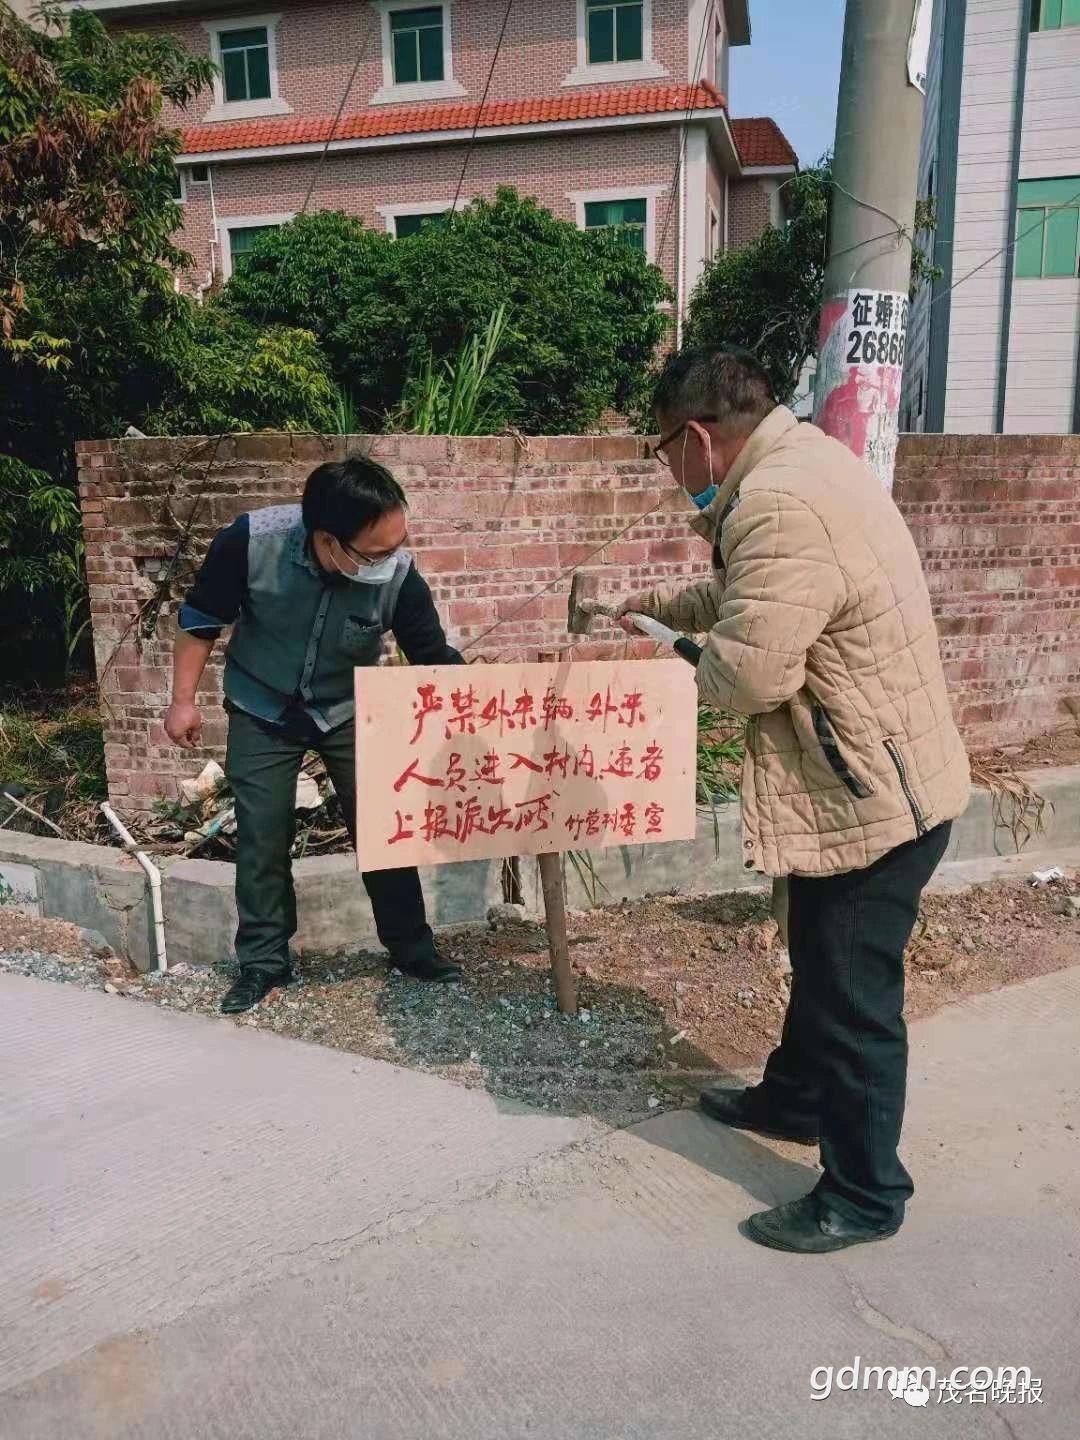 征婚
26868
严禁外来辆.外来
人员进入村内.违者
上报派出所 竹营村委宣
gdmm.com
茂名晚报